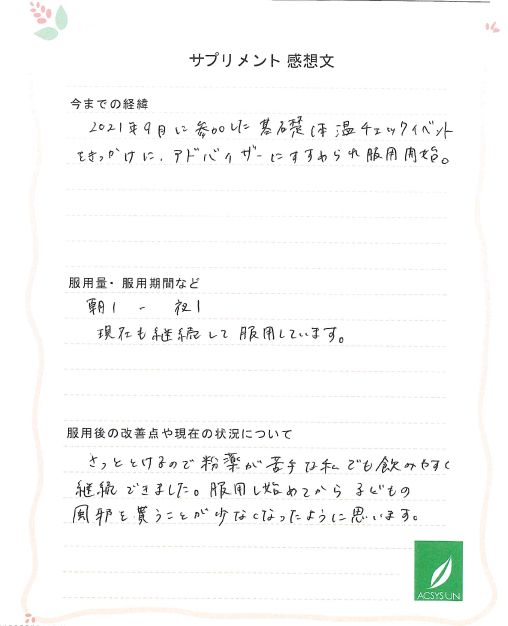 サプリメント 感想文
今までの経緯
2021年9月に参加した基礎体温チェックイベント
をきっかけに、アドバイザーにすすめられ服用開始。
服用量・服用期間など
朝1 - 夜1
現在も継続して服用しています。
服用後の改善点や現在の状況について
さっととけるので粉薬が苦手な私でも飲みやすく
継続できました。服用し始めてから子どもの
風邪を貰うことが少なくなったように思います。
ACSYSUN